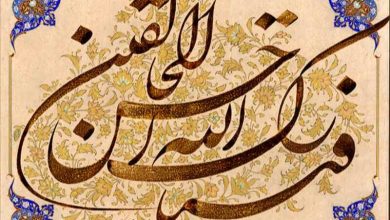 فتبارک الله احسن الخالقین